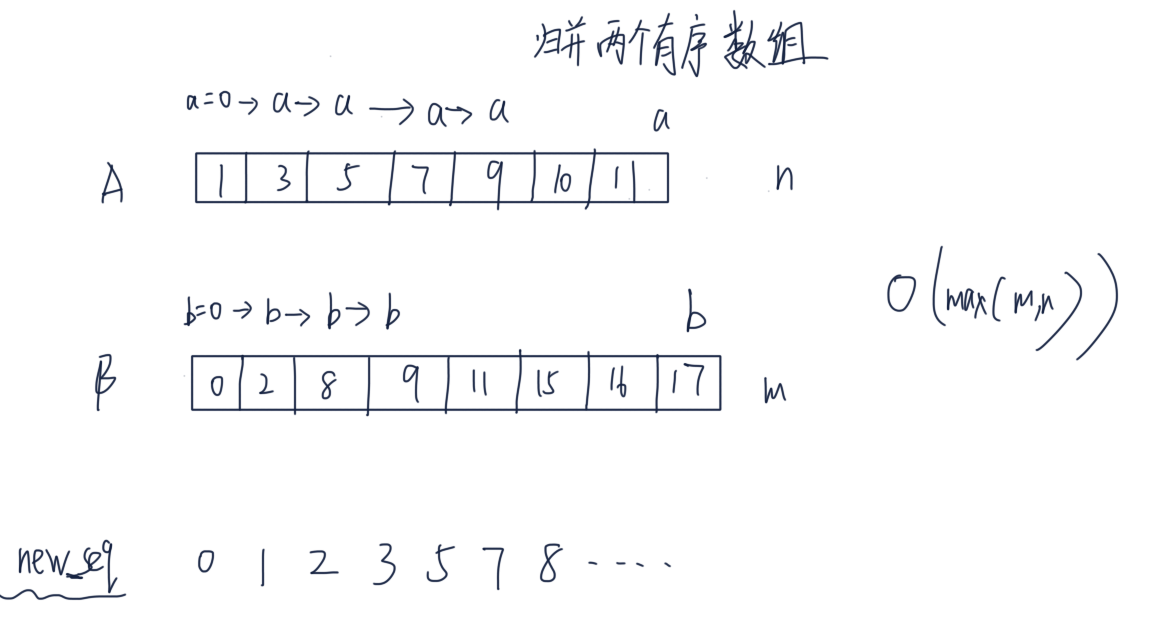 归并两个有序数组
a=0→a→a→a→a a
A 1 3 5 7 9 10 11 n
O(max(m,n))
b=0→b→b→b b
B 0 2 8 9 11 15 16 17 m
new_seq 0 1 2 3 5 7 8 ·····